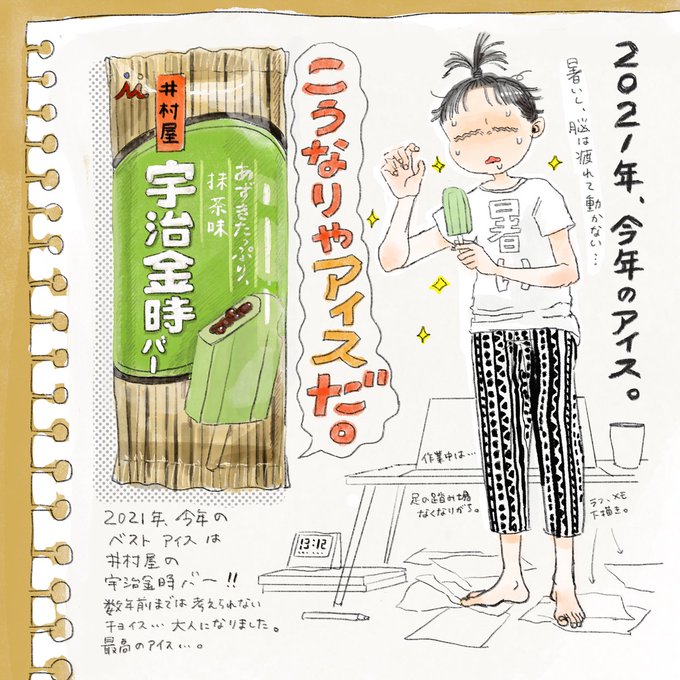 2021年、今年のアイス。
暑いし、脳は疲れて動かない…
こうなりゃアイスだ。
井村屋
宇治金時バー
あずきたっぷり、
抹茶味
暑い
作業中は…
足の踏み場
なくなりがち。
ラフ、メモ
下描き。
13:12
2021年、今年の
ベストアイスは
井村屋の
宇治金時バー!!
数年前までは考えられない
チョイス…大人になりました。
最高のアイス…。